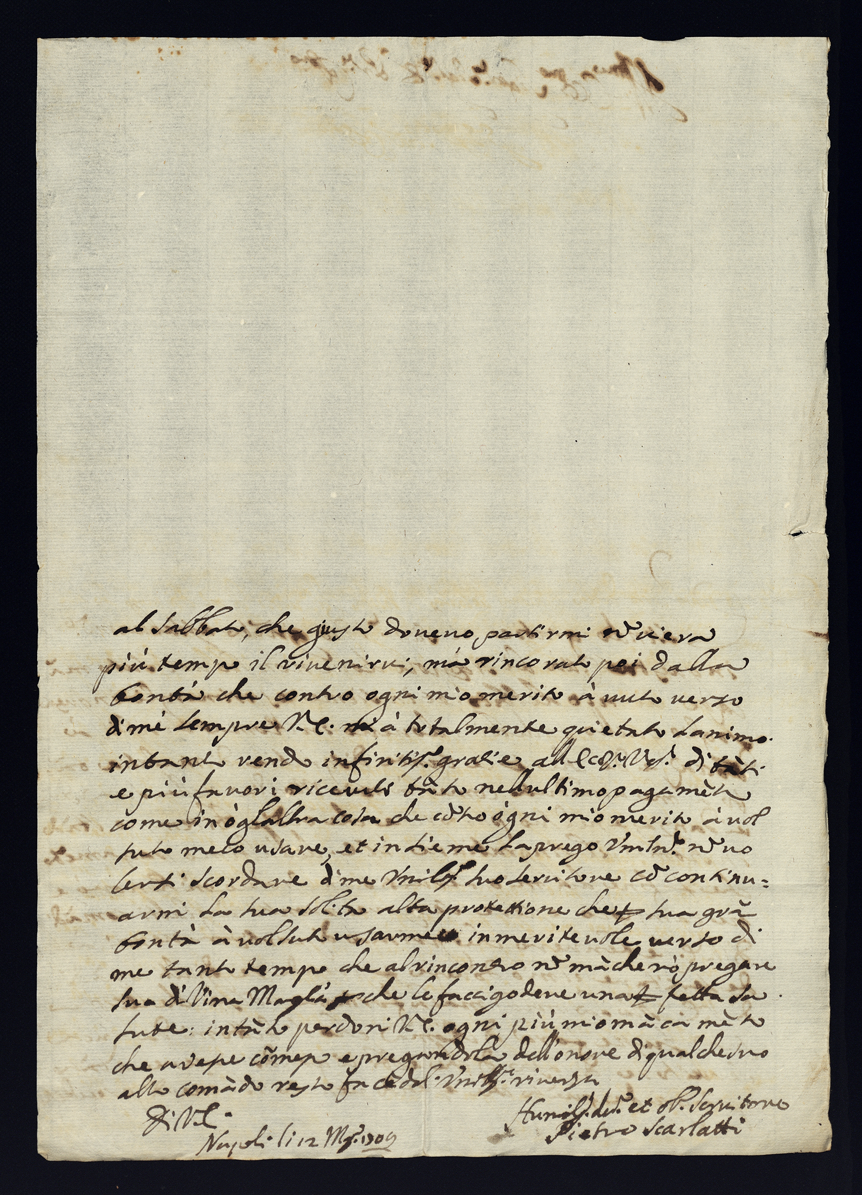 al Sabbato, che giusto dovevo partirmi nõ vi era
più tempo il rivenirvi, mà rincorato poi dalla
bontà che contro ogni mio merito à auto verso
di mè sempre V.E. mi à totalmente quietato l'animo.
intanto rendo infinitiss.e gratie all' di tãti
e più favori ricevuti tãto nell ultimo pagamẽto
come in ògl altra cosa che cõtro ògni mio merito à vol
suto meco usare, et insieme la prego nõ vo
lersi scordare di me suo servitore cõ continu=
armi la sua solita alta protettione che p sua grã
bontà à volsuto usarmela inmeritevole verso di
me tanto tempo che al rincontro nõ mãcherò pregare
sua Divina Maglà p che le facci godere una p fetta sa
lute: intãto perdoni V.E. ogni più mio mãcamẽto
che avesse cõmesso e pregandola dell'onore di qualche suo
alto comãdo resto facẽdol riverẽza
Di V.E.
Humiliss.o dev.o et ob.o Servitore
Napoli li 12 Mg.o 1709
Pietro Scarlatti